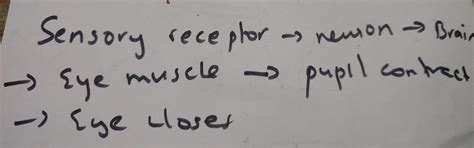 Sensory receptor → neuron → Brain
→ Eye muscle → pupil contract
→ Eye closes